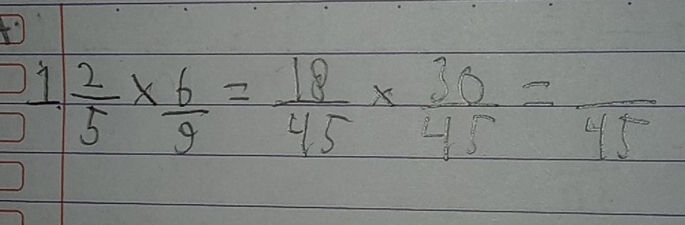 1. 2/5 × 6/9 = 18/45 × 30/45 = __/45